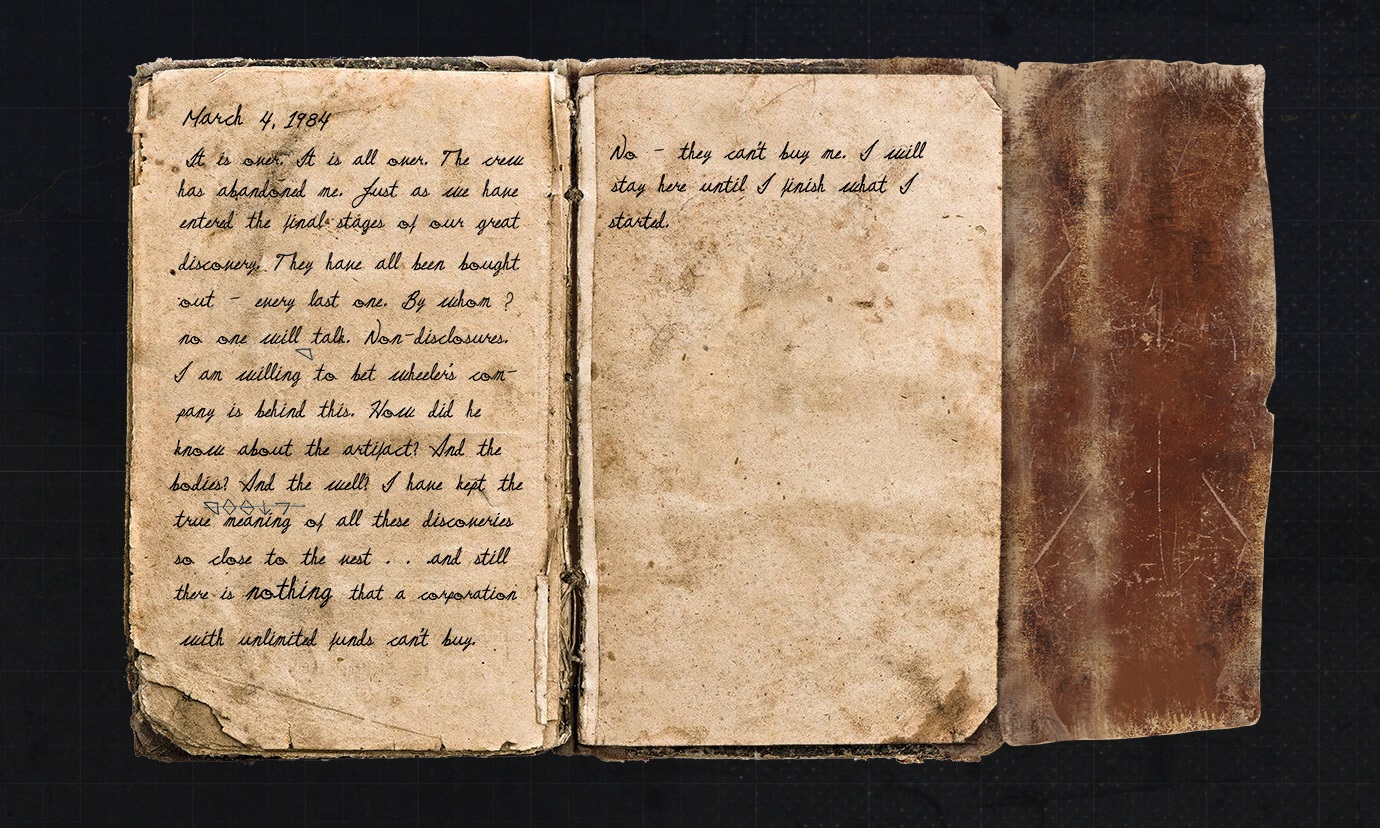 March 4, 1984
It is over. It is all over. The crew
has abandoned me. Just as we have
entered the final stages of our great
discovery. They have all been bought
out - every last one. By whom ?
no one will talk. Non-disclosures.
I am willing to bet wheeler's com-
pany is behind this. How did he
know about the artifact? And the
bodies? And the well? I have kept the
true meaning of all these discoveries
so close to the vest . . and still
there is nothing that a corporation
with unlimited funds can't buy.
No - they can't buy me. I will
stay here until I finish what I
started.